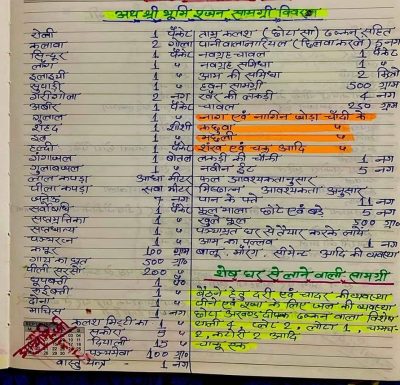 अथ श्री भूमि पूजन सामग्री विवरण
रोली 1 पैकेट
कलावा 2 गोला
सिन्दूर 1 पैकेट
लौंग 1 "
इलायची 1 "
सुपाड़ी 1 "
गरीगोला 2 नग
अबीर 1 पैकेट
गुलाल 1 "
शहद 1 शीशी
इत्र 1 "
हल्दी 1 पैकेट
गंगाजल 1 बोतल
गुलाबजल 1 "
लाल कपड़ा आधा मीटर
पीला कपड़ा सवा मीटर
जनेऊ 7 नग
सर्वोषधि 1 पैकेट
सप्तमृतिका 1 "
सप्तधान्य 1 "
पञ्चरत्न 1 "
कपूर 100 ग्राम
गाय का घृत 500 ग्रा०
पीली सरसों 200 "
धूपबत्ती 1 पै०
रुईबत्ती 1 "
दोना 1 "
माचिस 1 नग
कलश मिट्टी का 1 "
सकोरा 5 "
दियाली 15 "
पञ्चमेवा 100 ग्रा०
वास्तु यन्त्र - 1 नग
ताम्र कलश (छोटा सा) ढक्कन सहित
पानी वाला नारियल (छिलका वाला) 5 नग
नवग्रह चावल 1 पैकेट
नवग्रह समिधा 1 "
आम की समिधा 2 किलो
हवन सामग्री 500 ग्राम
खैर की लकड़ी 4 नग
चावल 250 ग्राम
नाग एवं नागिन जोड़ा चाँदी के
कछुवा "
मछली "
शंख एवं चक्र आदि "
लकड़ी की चौकी 1 नग
नवीन ईंट 5 नग
फल आवश्यकतानुसार
मिष्ठान्न - आवश्यकता अनुसार
पान के पत्ते 11 नग
फूल माला छोटे एवं बड़े 5 नग
खुले फूल 500 ग्रा०
पञ्चामृत घर से तैयार करके लायें
आम का पल्लव 1 नग
बालू, मौरंग, सीमेन्ट आदि की व्यवस्था
शेष घर से लाने वाली सामग्री
बैठने हेतु दरी एवं चादर की व्यवस्था
पीने एवं पूजा के लिए जल की व्यवस्था
छोटा अखण्ड दीपक ढक्कन वाला विशेष
थाली 4, प्लेट 2, लोटा 1, चम्मच-
2, कटोरी 2 आदि
चाकू एक